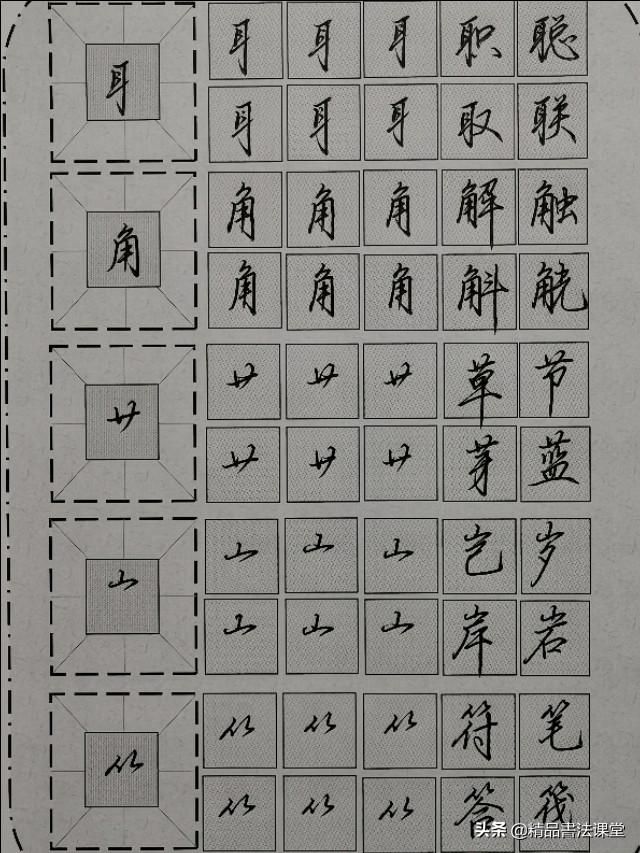 耳
耳 耳 耳 职 聪
耳 耳 耳 取 联
角
角 角 角 解 触
角 角 角 斛 觥
艹
艹 艹 艹 草 节
艹 艹 艹 芽 蓝
山
山 山 山 岂 岁
山 山 山 岸 岩
⺮
⺮ ⺮ ⺮ 符 笔
⺮ ⺮ ⺮ 答 筏
头条 @精品書法课堂